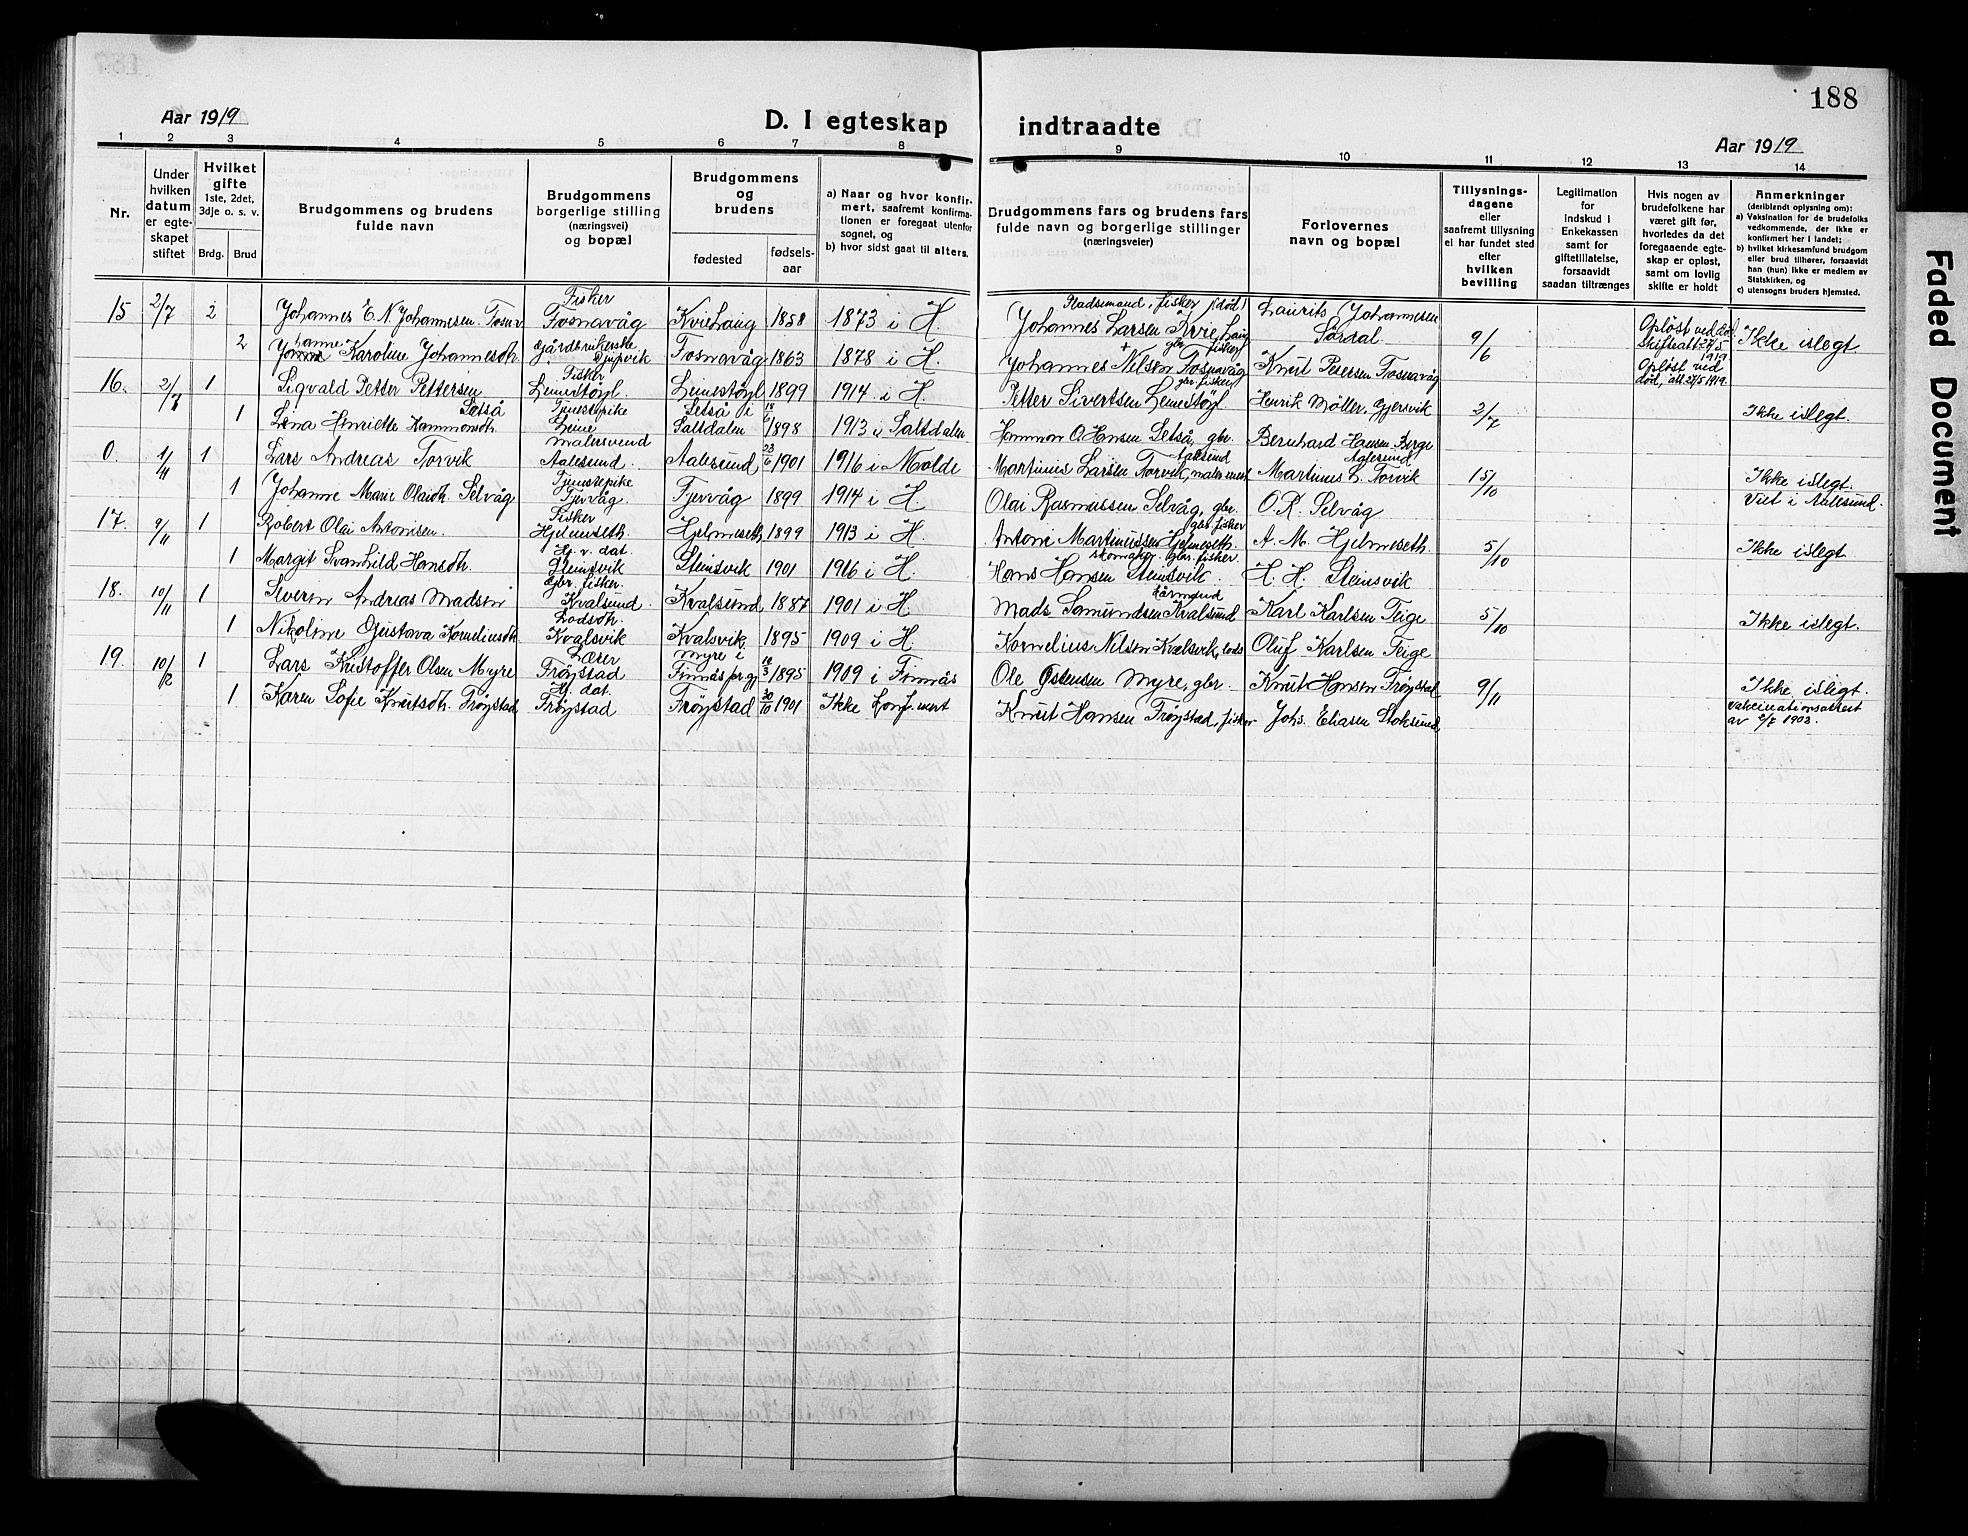 188
Aar 1919
D. I egteskap indtraadte
Aar 1919
1 2 3 4 5 6 7 8 9 10 11 12 13 14
Nr.
Under hvilken datum er egteskapet stiftet
Hvilket gifte 1ste, 2det, 3dje o. s. v.
Brdg. Brud
Brudgommens og brudens fulde navn
Brudgommens borgerlige stilling (næringsvei) og bopæl
Brudgommens og brudens
fødested
fødsels-aar
a) Naar og hvor konfirmert, saafremt konfirmationen er foregaat utenfor sognet, og
b) hvor sidst gaat til alters.
Brudgommens fars og brudens fars fulde navn og borgerlige stillinger (næringsveier)
Forlovernes navn og bopæl
Tillysningsdagene eller saafremt tillysning ei har fundet sted efter hvilken bevilling
Legitimation for indskud i Enkekassen samt for giftetillatelse, forsaavidt saadan tiltrænges
Hvis nogen av brudefolkene har været gift før, hvorledes da det foregaaende egteskap er opløst, samt om lovlig skifte er holdt
Anmerkninger (deriblandt oplysning om):
a) Vaksination for de brudefolks vedkommende, der ikke er konfirmert her i landet;
b) hvilket kirkesamfund brudgom eller brud tilhører, forsaavidt han (hun) ikke er medlem av Statskirken, og
c) utensogns bruders hjemsted.
15 2/7 2 Johannes E. N. Johannesen Fosnv Fisker Fosnavåg Kviehaug 1858 1873 i H. Johannes Larsen Kviehaug Pladsmand, fisker (død) Laurits Johannesen Sørdal 9/6 Opløst ved død Skifteatt 27/5 1919 Ikke islegt
2 Johanne Karoline Johannesdt. Gårdbrukerske Djupvik Fosnavåg 1863 1878 i H. Johannes Nilsen Fosnavåg + gbr. fisker Knut Petersen Fosnavåg Opløst ved død, att. 27/5 1919.
16. 2/7 1 Sigvald Petter Pettersen Fisker Leinestøyl. Leinestøyl 1899 1914 i H. Petter Sivertsen Leinestøyl gbr. fisker Henrik Möller, Gjersvik 2/7 Ikke islegt.
1 Lina Henriette Hammonsdt. Setså Tjenestepike Leine Setså i Saltdalen 1898 1913 i Saltdalen Hammon O. Hansen Setså, gbr. Bernhard Hansen Berge
0. 1/11 1 Lars Andreas Torvik malersvend Aalesund. Aalesund 23/6 1901 1916 i Molde Martinus Larsen Torvik, maler mest Aalesund Martinus L. Torvik Aalesund 15/10 Ikke islegt.
1 Johanne Marie Olaidt. Selvåg Tjenestepike Tjervåg Tjervåg 1899 1914 i H. Olai Rasmussen Selvåg, gbr. O. R. Selvåg Viet i Aalesund.
17. 9/11 1 Robert Olai Antonisen. Fisker Hjelmeseth. Hjelmeseth 1899 1913 i H. Antoni Martinussen Hjelmeseth. gbr. fisker A. M. Hjelmeseth. 5/10 Ikke islegt
1 Margit Svanhild Hansdt. Hj. v. dat. Steinsvik Steinsvik 1901 1916 i H. Hans Hansen Steinsvik. skomaker. gbr. fisker H. H. Steinsvik
18. 10/11 1 Sverin Andreas Madsen gbr. fisker. Kvalsund. Kvalsund 1887 1901 i H. Mads Samundsen Kvalsund Kårmand Karl Karlsen Teige 5/10 Ikke islegt.
1 Nikoline Gustava Korneliusdt. Losdt. Kvalsvik Kvalsvik 1895 1909 i H. Kornelius Nilsen Kvalsvik, lods Oluf Karlsen Teige
19. 10/12 1 Lars Kristoffer Olsen Myre Læser Frøystad Myre i Finnås pr.gj 1895 1909 i Finnås Ole Østensen Myre, gbr. Knut Hansen Frøystad 9/11 Ikke islegt.
1 Karen Sofie Knutsdt. Frøystad Hj. dat. Frøystad Frøystad 30/10 1901 Ikke konf.mert Knut Hansen Frøystad, fisker Johs. Eliasen Stoksund Vakcinationsattest av 2/7 1903.
Faded Document